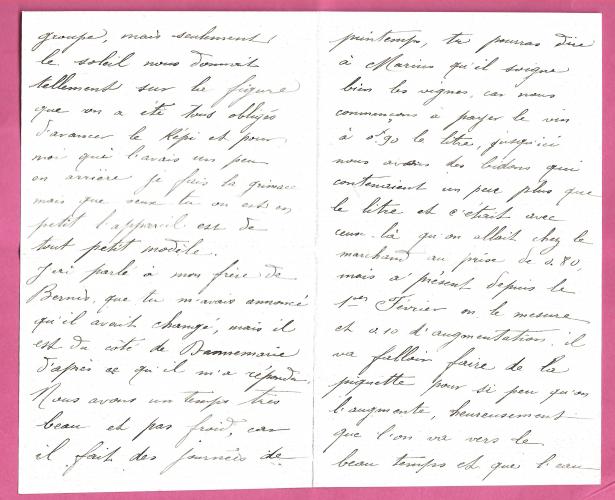 groupe, mais seulement
le soleil nous donnait
tellement sur la figure
que on a été tous obligés
d'avancer le Képi et pour
moi qui l'avais un peu
en arrière je fais la grimace
mais que veux tu on est en
petit l'appareil est de
tout petit modèle.
J'ai parlé à mon frère de
Bernis, que tu m'avais annoncé
qu'il avait changé, mais il
est du côté de Dannemarie
d'après ce qu'il m'a répondu.
Nous avons un temps très
beau et pas froid, car
il fait des journées de
printemps, tu pourras dire
à Marius qu'il soigne
bien les vignes, car nous
commençons à payer le vin
à 0f90 le litre, jusqu'ici
nous avons des bidons qui
contenaient un peu plus que
le litre et c'était avec
ceux-là qu'on allait chez le
marchand au prise de 0.80,
mais a présent depuis le
1er Février on le mesure
et 0.10 d'augmentation. il
va falloir faire de la
piquette pour si peu qu'on
l'augmente, heureusement
que l'on va vers le
beau temps et que l'eau